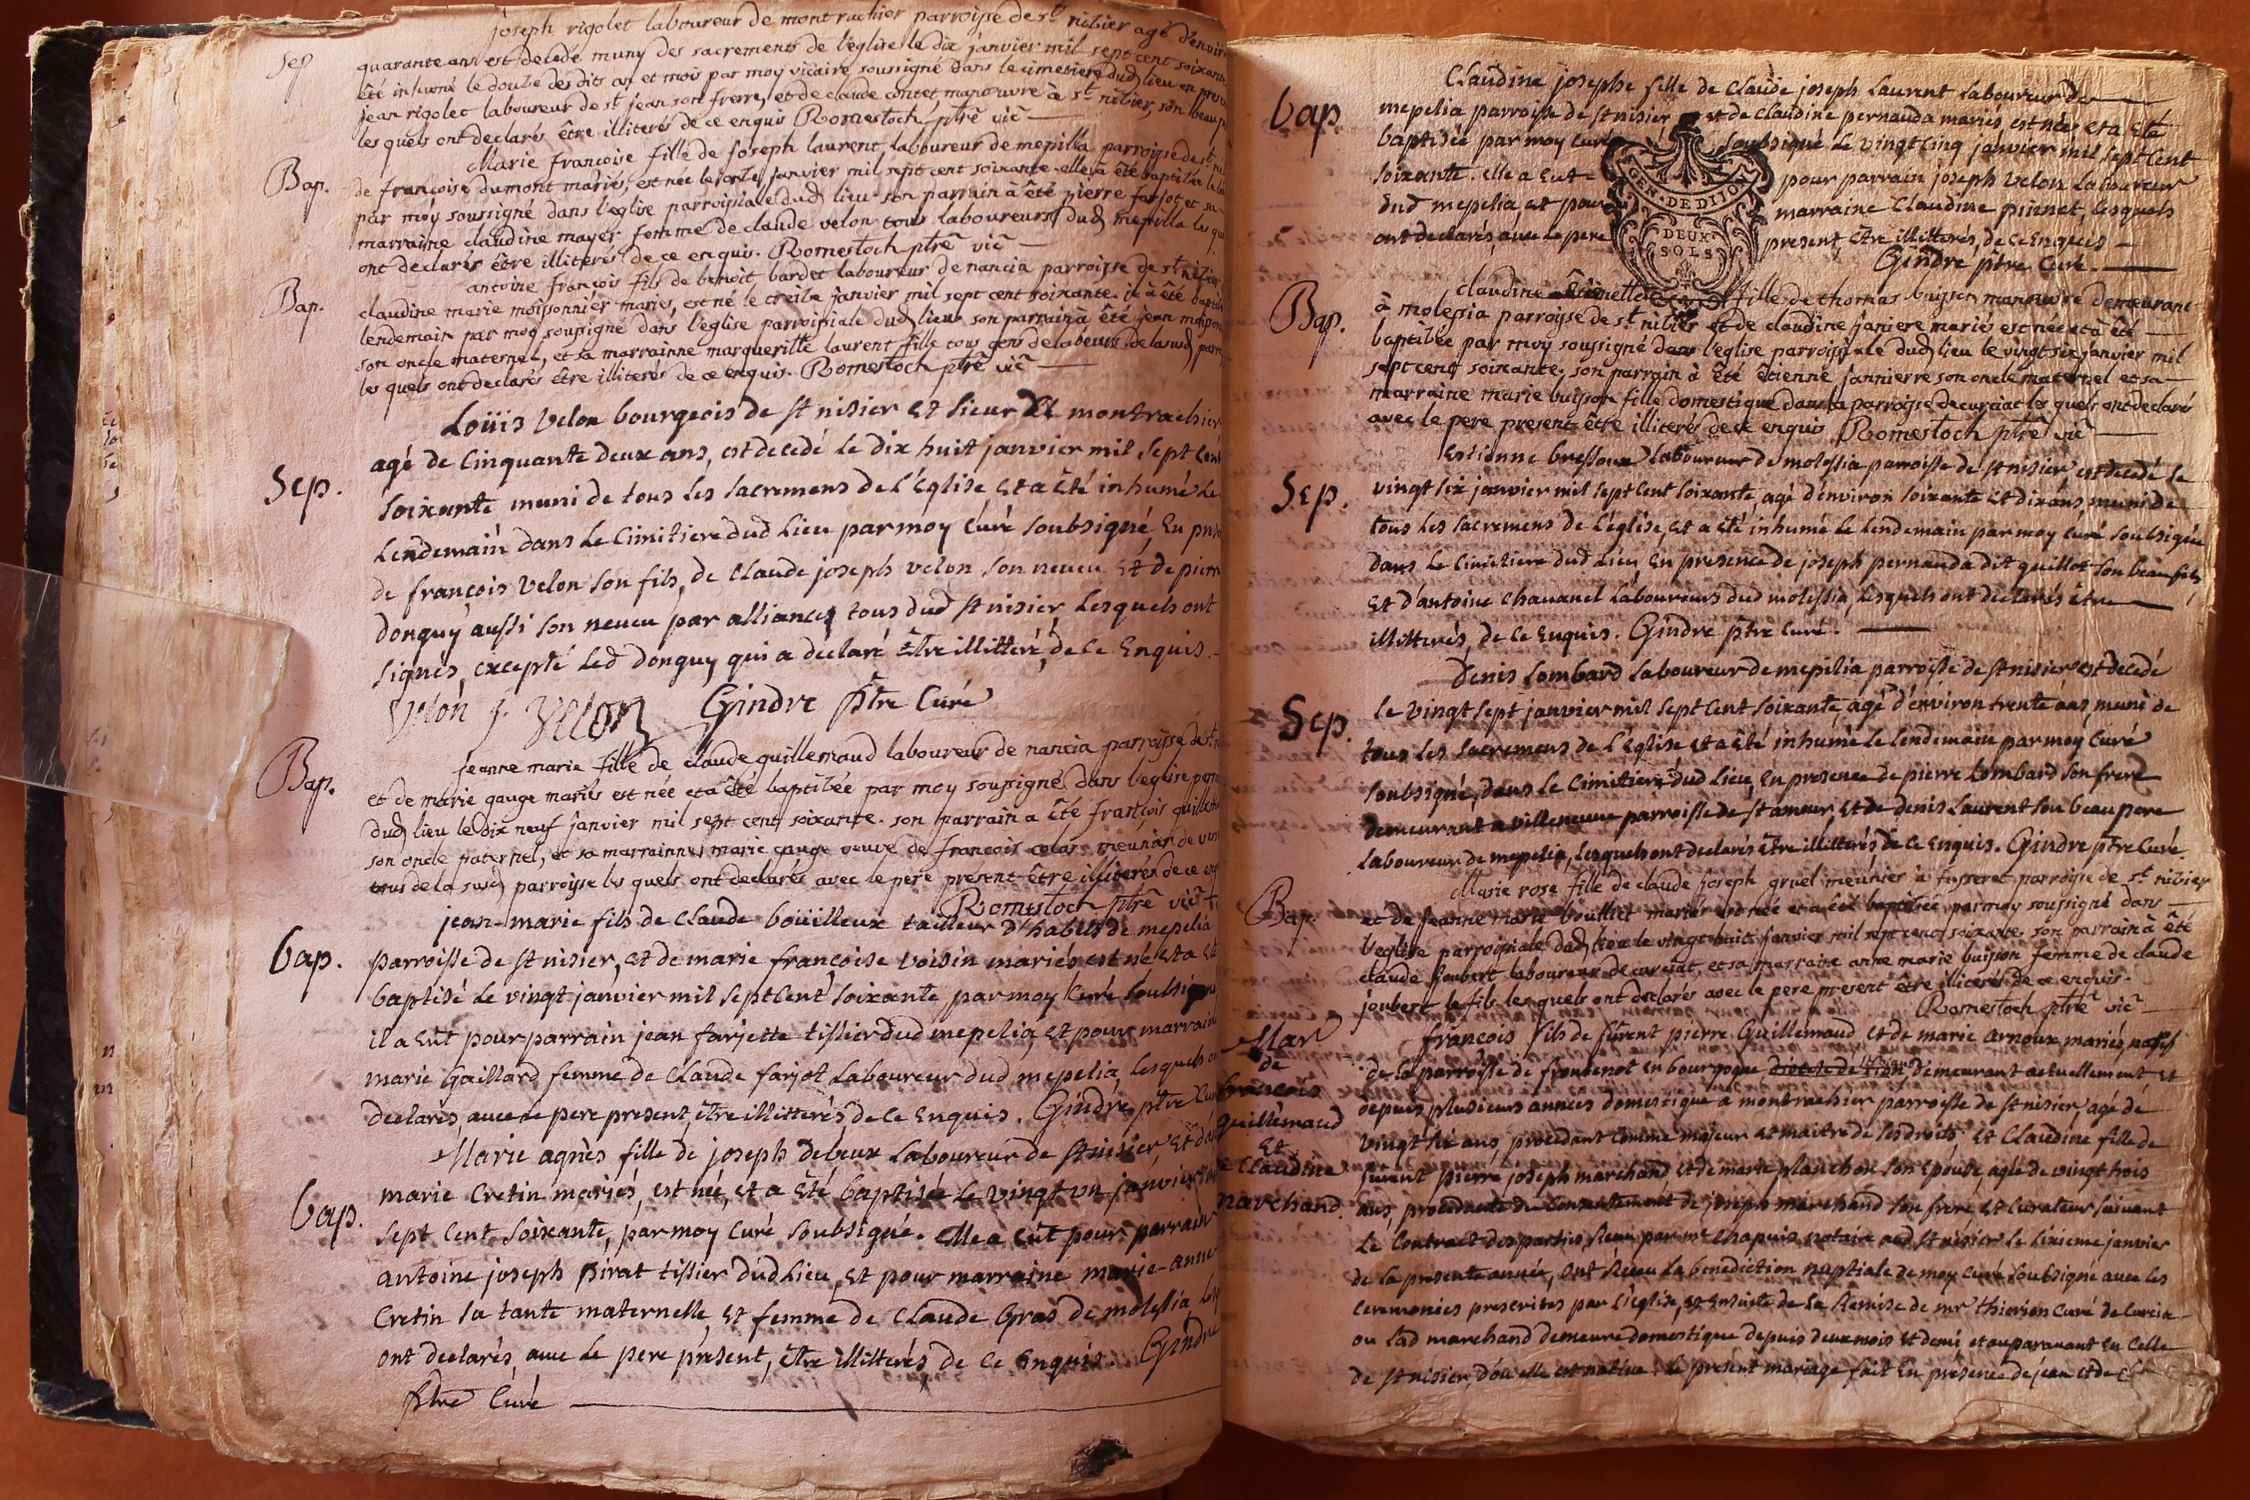 joseph rigolet laboureur de montrachier parroisse de st nizier agé d'environ
Sep
quarante ans est decedé muny des sacrements de l'église le dix janvier mil sept cent soixante
été inhumé le douze desdits an et mois par moy vicaire soussigné dans le cimetiere dud lieu en
jean rigolet laboureur de st jean son frere, et de claude contet manouvre à st nizier son beau
les quels ont declarés être illiterés de ce enquis Romestoch ptre vic
Marie francoise fille de joseph laurent laboureur de mepilla parroisse de st
Bap.
de francoise dumont mariés, est née le onze janvier mil sept cent soixante elle à été baptisée le
par moy soussigné dans l'eglise parroissiale dud lieu son parrain à été pierre farjot et sa
marraine claudine mayer femme de claude velon tous laboureurs dud mepilla les
ont declarés être illiterés de ce enquis. Romestoch ptre vic
antoine françois fils de benoit bardet laboureur de nancia parroisse de st nizier
Bap.
claudine marie moissonnier mariés, est né le treize janvier mil sept cent soixante il à été baptisé
lendemain par moy soussigné dans l'eglise parroissiale dud lieu son parrain à été jean
son oncle maternel, et sa marrainne marguerille laurent fille tous gens de labeurs de la susd
les quels ont declarés être illiterés de ce enquis. Romestoch ptre vic
Loüis Velon bourgeois de st nisier et sieur de montrachier
agé de Cinquante deux ans, est decedé le dix huit janvier mil sept cent
Sep.
soixante muni de tous les sacremens de l'Eglise et a été inhumé le
Lendemain dans le Cimitiere dud Lieu par moy Curé soubsigné, en
de françois Velon son fils, de Claude joseph velon son neveu et de pierre
donguy aussi son neveu par alliance, tous dud st nisier, Lesquels ont
signes, excepté led donguy qui a declaré Etre illitteré, de ce Enquis.
Velon j. Velon Gindre ptre Curé
Jeanne marie fille de claude guillemaud laboureur de nancia parroisse de st
Bap.
et de marie gauge mariés est née et à été baptisée par moy soussigné dans l'eglise
dud lieu le dix neuf janvier mil sept cent soixante. son parrain a été françois
son oncle paternel, et sa marrainne marie gauge veuve de francois colas meunier de
tous de la susd parroisse les quels ont declarés avec le pere present être illiterés de ce
Romestoch ptre vic
jean-marie fils de Claude boüilleux tailleur d'habits de mepelia
bap.
parroisse de st nisier, et de marie françoise voisin mariés est né et a été
baptisé le vingt janvier mil sept Cent soixante par moy Curé soubsigné
il a Eût pour parrain jean farjette tissier dud mepelia, et pour marraine
marie Gaillard femme de Claude farjot Laboureur dud mepelia, Lesquels
declarés, avec le pere present, être illitterés, de ce Enquis. Gindre ptre Curé
Marie agnès fille de joseph deleux Laboureur de st nisier, et de
marie Cretin mariés, est née, et a Eté baptisée le vingt un janvier
bap.
sept Cent soixante, par moy Curé soubsigné. elle a eût pour parrain
antoine joseph pirat tissier dud Lieu, et pour marraine marie-anne
Cretin sa tante maternelle, et femme de Claude Gras de molessia
ont declarés, avec le pere present, être illitterés, de ce Enquis. Gindre
ptre Curé
Claudine josephe fille de Claude joseph Laurent Laboureur de
bap.
mepelia parroisse de st nisier et de Claudine pernauda mariés, est née et a été
baptisée par moy Curé soubsigné le vingt cinq janvier mil sept Cent
soixante. elle a eut pour parrain joseph Velon Laboureur
dud mepelia, et pour marraine Claudine pirenet, lesquels
ont declarés, avec le pere present, Etre illitterés, de ce Enquis
Gindre ptre Curé.
GEN. DE DIJON
DEUX
SOLS
claudine fille de thomas buisson manouvre demeurant
Bap.
à molessia parroisse de st nizier et de claudine janiere mariés est née et à été
baptisée par moy soussigné dans l'eglise parroissiale dud lieu le vingt six janvier mil
sept cent soixante, son parrain à été étienne jannierre son oncle maternel et sa
marraine marie buisson fille domestique dans la parroisse de curciat les quels ont declarés
avec le pere present être illiterés de ce enquis Romestoch ptre vic
Estienne bressoux Laboureur de molessia parroisse de st nisier est decedé le
Sep.
vingt six janvier mil sept Cent soixante, agé d'environ soixante et dix ans, muni de
tous les sacremens de l'église, et a été inhumé le Lendemain par moy Curé soubsigné
dans le Cimitiere dud Lieu en presence de joseph pernauda dit guillot son beau fils
et d'antoine Chavanel Laboureurs dud molessia, Lesquels ont declarés être
illitterés, de ce Enquis. Gindre ptre Curé.
Denis Lombard Laboureur de mepilia parroisse de st nisier est decedé
Sep.
le vingt sept janvier mil sept Cent soixante, agé d'environ trente ans, muni de
tous les sacremens de l'Eglise et a été inhumé le Lendemain par moy Curé
soubsigné, dans le Cimitiere dud Lieu, en presence de pierre Lombard son frere
demeurant a villeneuve parroisse de st amour, et de denis Laurent son beau pere
Laboureur de mepelia, Lesquels ont declarés être illitterés de ce Enquis. Gindre ptre Curé.
Marie rose fille de claude joseph gruel meunier à parroisse de st nizier
Bap.
et de jeanne marie bouillet mariés est née et a été baptisée par moy soussigné dans
l'eglise parroissiale dud lieu le vingt huit janvier mil sept cent soixante son parrain à été
claude joubert laboureur de curciat, et sa marraine anne marie buisson femme de claude
joubert le fils les quels ont declarés avec le pere present être illiterés de ce enquis.
Romestoch ptre vic
Mar
de
francois
Guillemaud
Et
Claudine
marchand.
françois fils de furent pierre Guillemaud et de marie arnoux mariés, natif
de la parroisse de frontenot en bourgogne demeurant actuellement et
depuis plusieurs années domestique a montrachier parroisse de st nisier, agé de
vingt six ans, procedant comme majeur et maitre de ses droits et Claudine fille de
furent pierre joseph marchand, et de marie planchon son Epouse, agée de vingt trois
ans, procedante du Consentement de joseph marchand son frere et Curateur suivant
le Contract des parties Reçu par me Chapuis notaire aud st nisier le sixieme janvier
de la presente année, ont Reçu la benediction nuptiale de moy Curé soubsigné avec les
Ceremonies prescrites par l'église, et Ensuite de la Remise de mr thierion Curé de Curcia
ou lad marchand demeure domestique depuis deux mois et demi et auparavant en celle
de st nisier, d'où elle est native. le present mariage fait en presence de jean et de